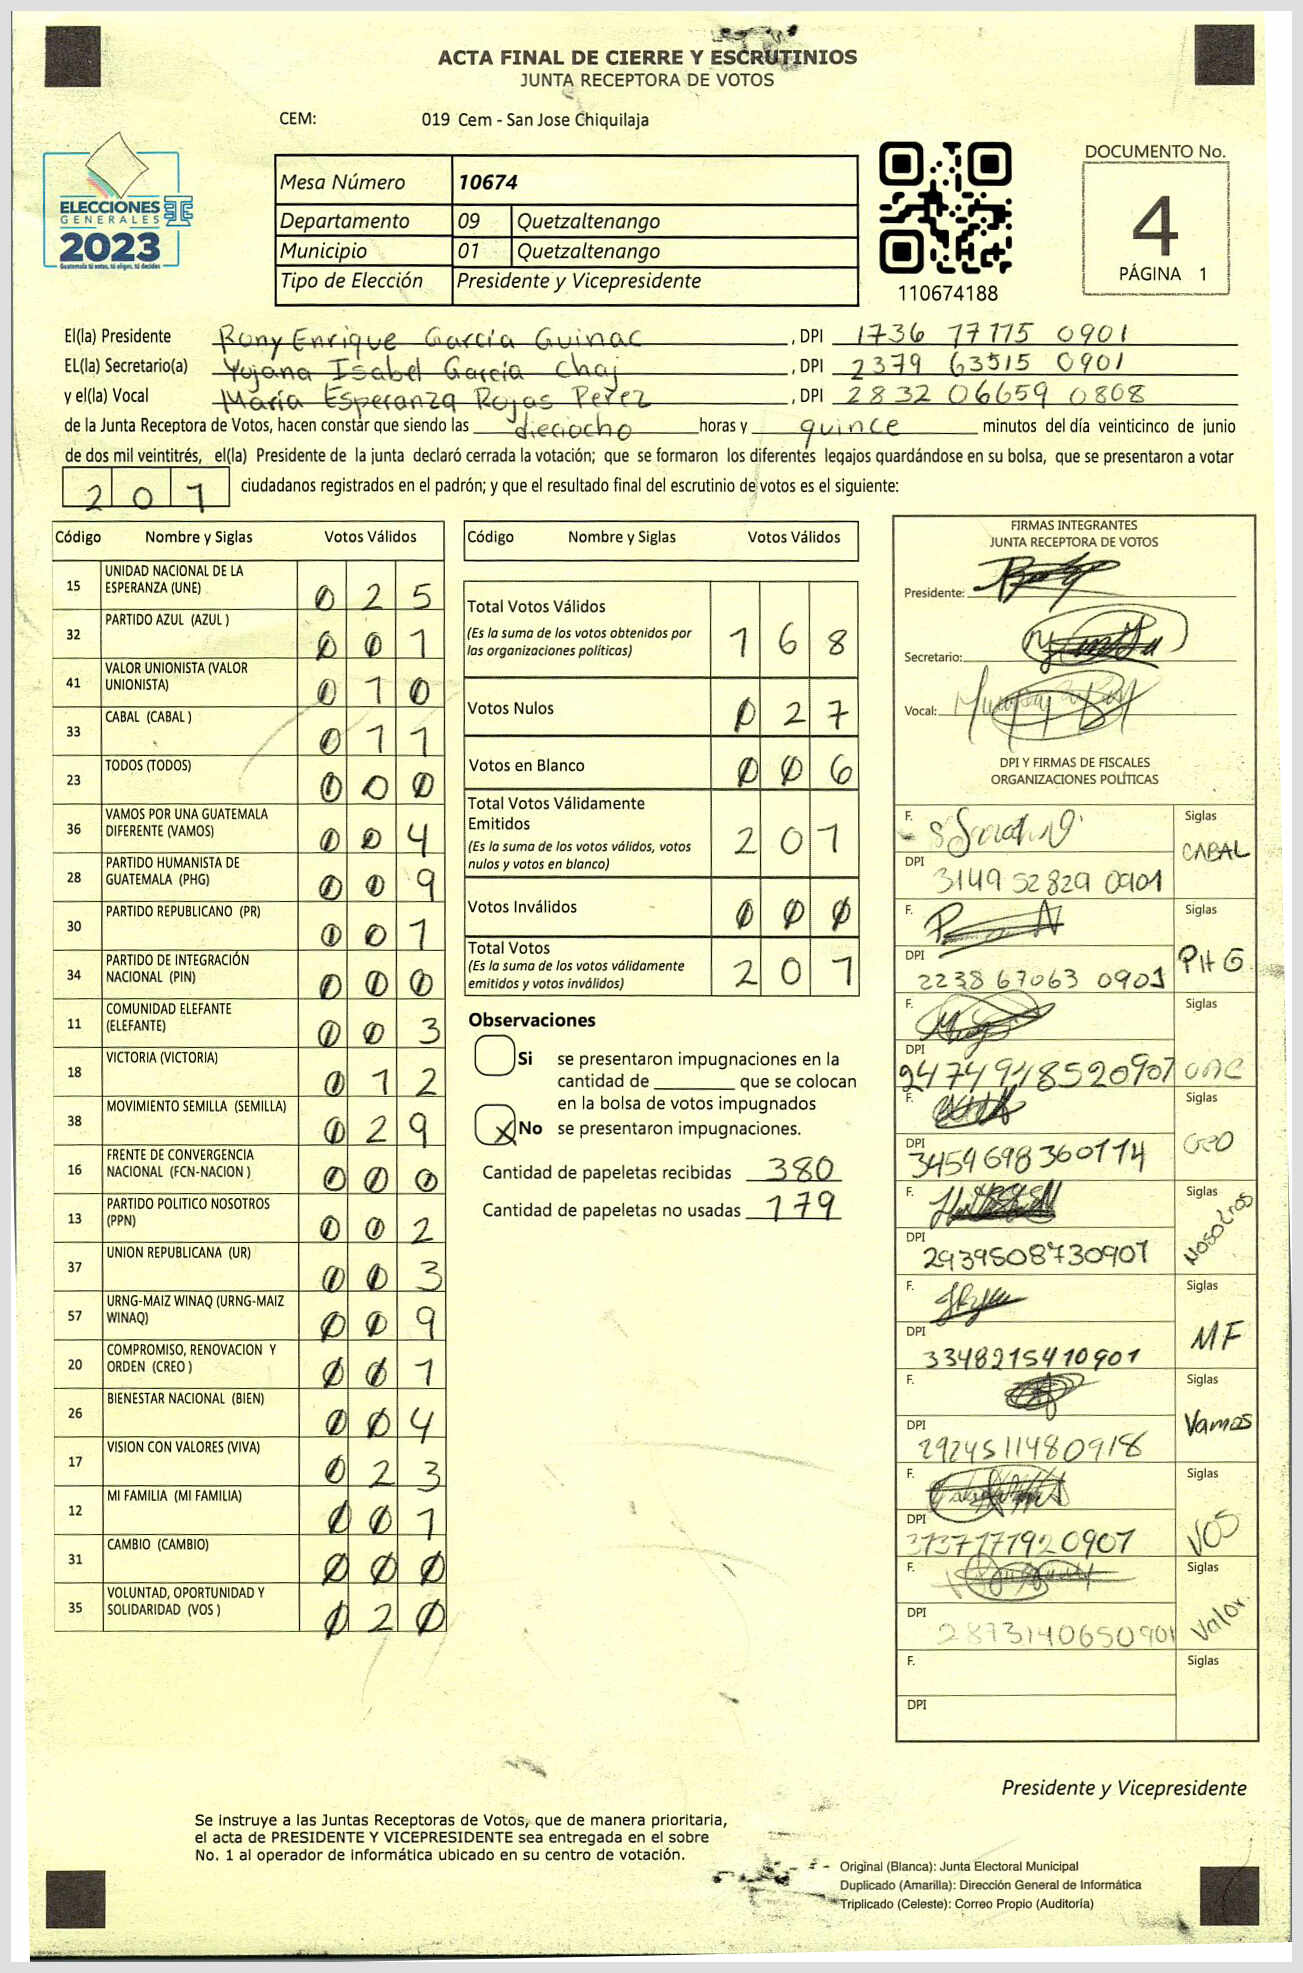 ACTA FINAL DE CIERRE Y ESCRUTINIOS
JUNTA RECEPTORA DE VOTOS
CEM: 019 Cem - San Jose Chiquilaja
ELECCIONES
GENERALES
2023
Guatemala tú votas, tú eliges, tú decides
Mesa Número 10674
Departamento 09 Quetzaltenango
Municipio 01 Quetzaltenango
Tipo de Elección Presidente y Vicepresidente
110674188
DOCUMENTO No.
4
PÁGINA 1
El(la) Presidente Rony Enrique García Guinac, DPI 1736 77775 0901
EL(la) Secretario(a) Yojana Isabel García Chaj, DPI 2379 63515 0901
y el(la) Vocal María Esperanza Rojas Perez, DPI 2832 06659 0808
de la Junta Receptora de Votos, hacen constar que siendo las dieciocho horas y quince minutos del día veinticinco de junio
de dos mil veintitrés, el(la) Presidente de la junta declaró cerrada la votación; que se formaron los diferentes legajos guardándose en su bolsa, que se presentaron a votar
201 ciudadanos registrados en el padrón; y que el resultado final del escrutinio de votos es el siguiente:
Código Nombre y Siglas Votos Válidos
15 UNIDAD NACIONAL DE LA ESPERANZA (UNE) 025
32 PARTIDO AZUL (AZUL ) 001
41 VALOR UNIONISTA (VALOR UNIONISTA) 010
33 CABAL (CABAL ) 011
23 TODOS (TODOS) 000
36 VAMOS POR UNA GUATEMALA DIFERENTE (VAMOS) 004
28 PARTIDO HUMANISTA DE GUATEMALA (PHG) 009
30 PARTIDO REPUBLICANO (PR) 001
34 PARTIDO DE INTEGRACIÓN NACIONAL (PIN) 000
11 COMUNIDAD ELEFANTE (ELEFANTE) 003
18 VICTORIA (VICTORIA) 012
38 MOVIMIENTO SEMILLA (SEMILLA) 029
16 FRENTE DE CONVERGENCIA NACIONAL (FCN-NACION ) 000
13 PARTIDO POLITICO NOSOTROS (PPN) 002
37 UNION REPUBLICANA (UR) 003
57 URNG-MAIZ WINAQ (URNG-MAIZ WINAQ) 009
20 COMPROMISO, RENOVACION Y ORDEN (CREO ) 001
26 BIENESTAR NACIONAL (BIEN) 004
17 VISION CON VALORES (VIVA) 023
12 MI FAMILIA (MI FAMILIA) 001
31 CAMBIO (CAMBIO) 000
35 VOLUNTAD, OPORTUNIDAD Y SOLIDARIDAD (VOS ) 020
Código Nombre y Siglas Votos Válidos
Total Votos Válidos 168
(Es la suma de los votos obtenidos por
las organizaciones políticas)
Votos Nulos 027
Votos en Blanco 006
Total Votos Válidamente
Emitidos 201
(Es la suma de los votos válidos, votos
nulos y votos en blanco)
Votos Inválidos 000
Total Votos 201
(Es la suma de los votos válidamente
emitidos y votos inválidos)
Observaciones
Si se presentaron impugnaciones en la
cantidad de ________ que se colocan
en la bolsa de votos impugnados
X No se presentaron impugnaciones.
Cantidad de papeletas recibidas 380
Cantidad de papeletas no usadas 179
FIRMAS INTEGRANTES
JUNTA RECEPTORA DE VOTOS
Presidente:
Secretario:
Vocal:
DPI Y FIRMAS DE FISCALES
ORGANIZACIONES POLÍTICAS
F. Siglas CABAL
DPI 3149 52829 0901
F. Siglas PHG
DPI 2238 67063 0901
F. Siglas
DPI 2474918520901
F. Siglas CREO
DPI 3459698360114
F. Siglas Nosotros
DPI 2939508730901
F. Siglas MF
DPI 3348215410901
F. Siglas Vamos
DPI 2924511480918
F. Siglas VOS
DPI 3137177920901
F. Siglas Valor.
DPI 2873140650901
F. Siglas
DPI
Presidente y Vicepresidente
Se instruye a las Juntas Receptoras de Votos, que de manera prioritaria,
el acta de PRESIDENTE Y VICEPRESIDENTE sea entregada en el sobre
No. 1 al operador de informática ubicado en su centro de votación.
Original (Blanca): Junta Electoral Municipal
Duplicado (Amarilla): Dirección General de Informática
Triplicado (Celeste): Correo Propio (Auditoría)